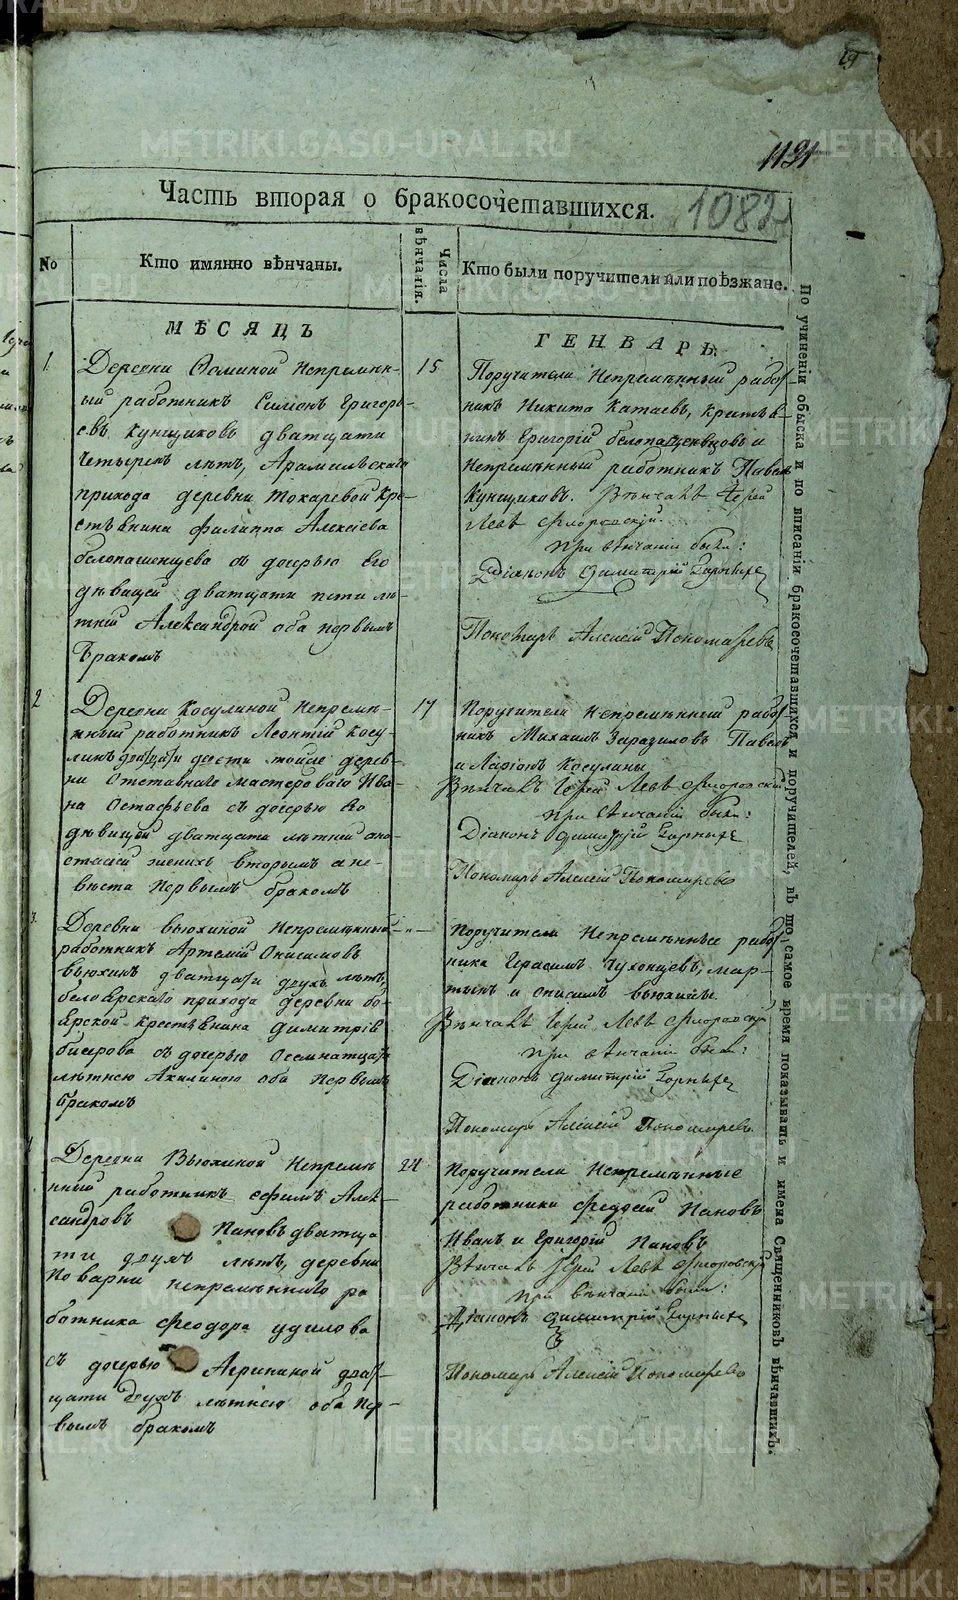 1121
Часть вторая о бракосочетавшихся.
1082
№
Кто имянно вѣнчаны.
Числа вѣнчанія.
Кто были поручители или поѣзжане.
МѢСЯЦЪ
ГЕНВАРЬ
1.
Деревни Непремѣн-
ный работникъ Симіонъ Григорь-
евъ Кунщиковъ дватцати
четырехъ лѣтъ, Арамильскаго
прихода деревни Токаревой Кре-
стьянина Филиппа Алексіева
белопашенцева съ дочерью его
дѣвицей дватцати пяти лѣ-
тней Александрой оба первымъ
Бракомъ
15
Поручители Непремѣнный работ-
никъ Никита Катаевъ, крестья-
нинъ Григорій белопашенцовъ и
Непремѣнный работникъ Павелъ
Кунщиковъ. Вѣнчалъ Іерей
Левъ Флоровскій.
при вѣнчаніи были:
Діаконъ Димитрій
Пономарь Алексій Пономаревъ
2
Деревни Косулиной Непремѣ-
нный работникъ Леонтій Косу-
линъ тойже дерев-
ни Отставнаго мастероваго Ива-
на Остафьева съ дочерью его
дѣвицей дватцати лѣтней Ана-
стасіей женихъ вторымъ а не-
вѣста первымъ бракомъ
17
Поручители Непремѣнный работ-
никъ Михаилъ Павелъ
и Ларіонъ Косулины
Вѣнчалъ Іерей Левъ Флоровскій
при вѣнчаніи были:
Діаконъ Димитрій
Пономарь Алексій Пономаревъ
3.
Деревни Вьюхиной Непремѣнный
работникъ Артемій Онисимовъ
Вьюхинъ дватцати двухъ лѣтъ,
белоярскаго прихода деревни бо-
ярской Крестьянина Димитрія
съ дочерью осемнатцати
лѣтнею Акилиною оба первымъ
бракомъ
— " —
Поручители Непремѣнные работ-
ника Герасимъ Чухонцевъ, мар-
тынъ и онисимъ вьюхины.
Вѣнчалъ Іерей Левъ Флоровскій
при вѣнчаніи были:
Діаконъ Димитрій
Пономарь Алексій Пономаревъ
4
Деревни Вьюхиной Непремѣ
нный работникъ ефимъ Алек-
сандровъ Пановъ дватца
ти двухъ лѣтъ, деревни
Поварни непремѣннаго ра
ботника Феодора удилова
съ дочерью Агрипиной дват-
цати двухъ лѣтнею оба пер-
вымъ бракомъ
24
Поручители Непремѣнные
работники Федосій Пановъ
Иванъ и Григорій Пановъ
Вѣнчалъ Іерей Левъ Флоровскій
при вѣнчаніи были:
Діаконъ Димитрій
Пономарь Алексій Пономаревъ
По учиненіи обыска и по вписаніи бракосочетавшихся и поручителей, въ то самое время показывать и имена Священниковъ вѣнчавшихъ.
METRIKI.GASO-URAL.RU